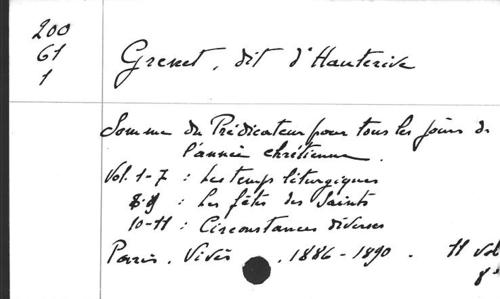 200
61
1
Grenet, dit d'Hauterive
Somme du Prédicateur pour tous les jours de
l'année chrétienne.
Vol. 1-7 : Les temps liturgiques
8-9 : Les fêtes des Saints
10-11 : Circonstances diverses
Paris, Vivès, 1886-1890. 11 vol
8°